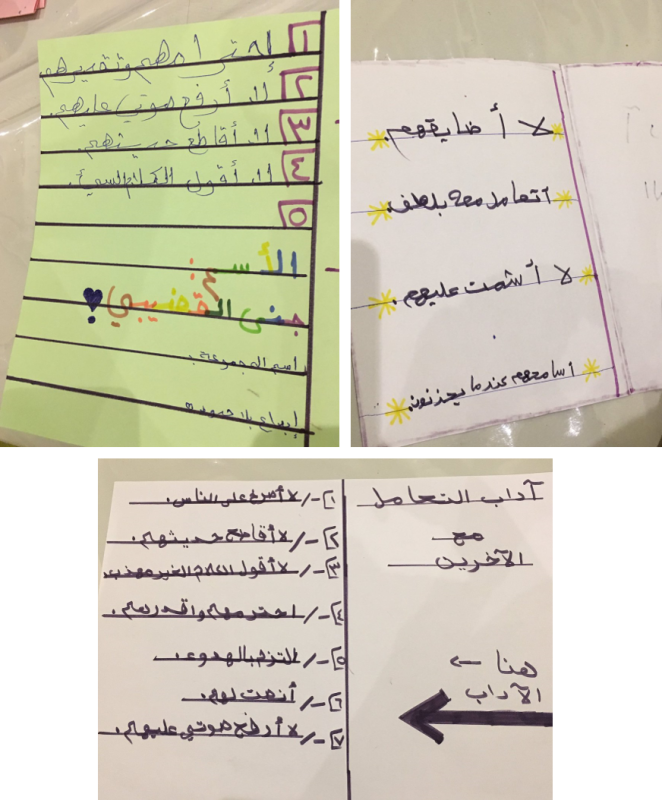 ١ احترامهم وتقديرهم
٢ ألا أرفع صوتي عليهم.
٣ ألا أقاطع حديثهم.
٣ ألا أقول الكلام السيء.
٥
الأسم
جنى القضيبي!
اسم المجموعة:
إبداع بلا حدود
لا أضايقهم.
أتعامل معه بلطف.
لا أشمت عليهم.
أسامحهم عندما يحزنون.
آداب التعامل
مع
الآخرين
هنا ←
الآداب
١-/ لا أصرخ على الناس.
٢-/ لا أقاطع حديثهم.
٣-/ لا أقول الكلام الغير مهذب.
٤-/ احترمهم واقدرهم.
٥-/ التزم بالهدوء.
٦-/ أنصت لهم.
٧-/ لا أرفع صوتي عليهم.